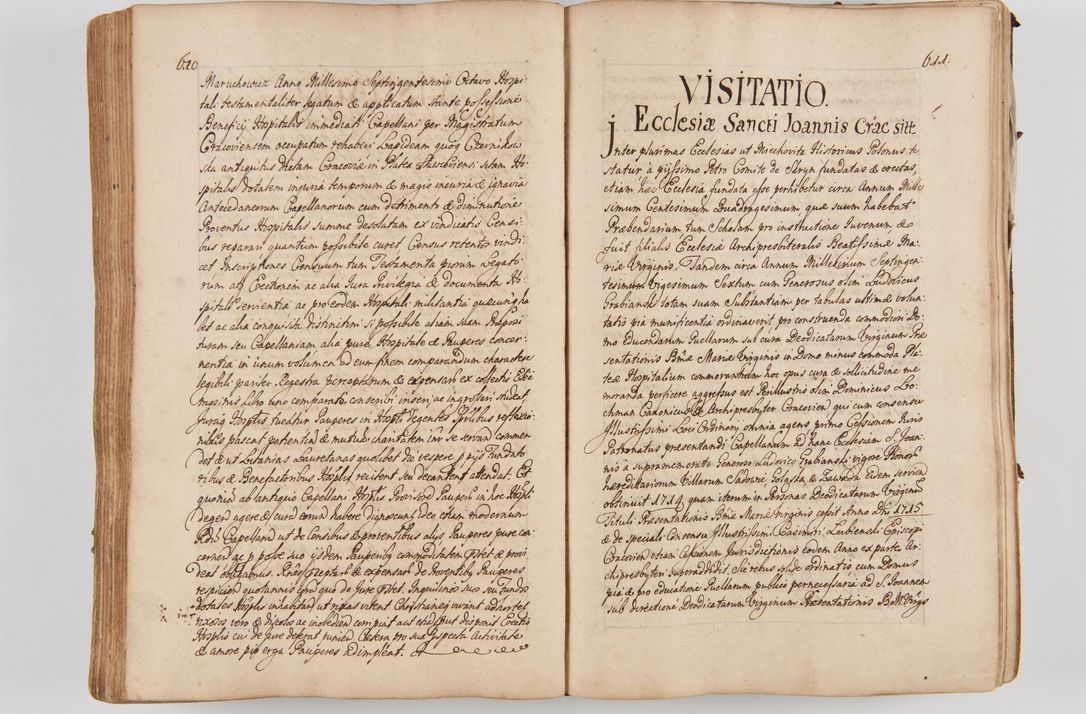 610
Maruchowicz Anno Millesimo Septingentesimo Octavo Hospi
tali testamentaliter legatum & applicatum stante possessione
Beneficij Hospitalis immediati Capellani per Magistratum
Cracoviensem occupatum rehaberi Lapideam quoq Czernikow
ska antiquitus dictam Cracoviæ in Platea Slawkoviensi sitam Ho
spitalis dotalem injuria temporum & magis incuria & ignavia
Antecedaneorum Capellanorum cum detrimento & diminutione
Proventus Hospitalis summe desolatam ex vindicatis Censi
bus reparari quantum possibile curet Census retentos vindi
cet Inscriptiones Censuum tum Testamenta piorum Legato
rum atq Erectionem ac alia Jura Privilegia & documenta Ho
spitali servientia ac pro eodem Hospitali militantia quæcunq ha
bet ac alia conquisita distinctim si possibile aliam suam Præposi
turam seu Capellaniam alia pure Hospitale & Pauperes concer
nentia in unum volumen ad eum finem comparandum charactere
legibili pariter Regestra perceptarum & expensarum ex collectis Elee
mosinis Libro uno comparato conscribi inseri ac ingrossari studeat
Jura Hosplis tueatur Pauperes in Hospli degentes Spiritibus reflexio
nibus pascat patientiam & mutuam charitatem inter se servari commen
det & ut Letanias Lauretanas quolibet die vespere pro pijs Fundato
ribus & Benefactoribus Hosplis recitent seu decantent attendat. Et
quoniam ab antiquo Capellani Hosplis Provisores Pauperum in hoc Hospli
degen agere & curam eorum habere dignoscuntur ideo etiam modernum
Rdum Capellanum ut de Censibus & proventibus alijs Pauperes pure con
cernen ac pro posse suo ijsdem Pauperibus commoditatem
deat obligamus.
respicien quotannis
dotales Hosplis inhabitantes ut rixas vitent Christianeq vivant adhortet
rixosos vero & discolos ac inobedien corripiat aut
Hosplis cui de jure
& amore pio erga Pauperes adimpleat.

611.
VISITATIO.
Ecclesiæ Sancti Joannis Crac sitæ
Inter plurimas Ecclesias ut Miechovita Historicus Polonus te
statur à pijssimo Petro Comite de Skryn fundatas & erectas,
etiam hæc Ecclesia fundata esse perhibetur circa Annum Mille
simum Centesimum Quadragesimum quæ suum habebat
Præbendarium tum Scholam pro instructione Juvenum, &
fuit filialis Ecclesiæ Archipresbiteralis Beatissimæ Ma
riæ Virginis. Tandem circa Annum Millesimum Septingen
tesimum Vigesimum Sextum cum Generosus olim Ludovicus
Grabianski totam suam Substantiam per tabulas ultimæ volun
tatis pia munificentia ordinaverit pro construenda commodiori Do
mo Educandarum Puellarum sub cura Deodicatarum Virginum Præ
sentationis Bmæ Mariæ Virginis in Domo minus commoda Pla
teæ Hospitalium commorantium hoc opus cura & sollicitudine me
moranda perficere aggressus est Perillustris olim Dominicus Lo
chman Canonicus & Archipresbyter Cracovien qui cum consensu
Illustrissimi Loci Ordinarij omnia agens primo Cessionem Juris
Patronatus præsentandi Capellanum ad hanc Ecclesiam S. Joan
nis à supramemorato Generoso Ludovico Grabianski vigore Bonorum
hæreditariorum Villarum Sadowie Goloszta & Zawada eidem servien
obtinuit 1714 quam iterum in Personas Deodicatarum Virginum
Tituli Præsentationis Bmæ Mariæ Virginis cessit Anno Dni 1715
& de speciali Consensu Illustrissimi Casimiri Lubienski Episcopi
Cracovien etiam Cessionem Jurisdictionis eodem Anno ex parte Ar
chipresbyteri superaddidit. Sic rebus solide ordinatis cum Domus
pia & pro educatione Puellarum publico pernecessaria ad S. Joannem
sub directione Deodicatarum Virginum Præsentationis Bett Virgs